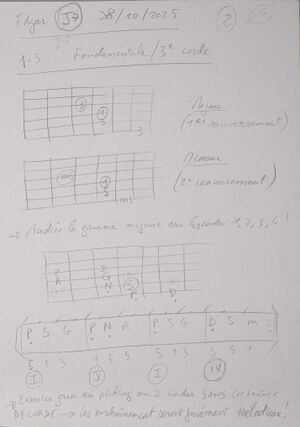 Edgar J4 28/10/2025 2
1-3 Fondamentale / 3e corde
3
1
5
3
Majeur
(1er renversement)
m3
1
5
m3
Mineur
(2e renversement)
→ Etudier la gamme majeure sur les cordes 1, 2, 3, 4 !
P S G P N R P S G D S m
5 1 3 1 3 5 5 1 3 3 5 1
I V I IV
→ Exercice jouer en picking sur 2 cordes SANS CHANGER
DE CORDE → les enchaînements seront forcément mélodieux !